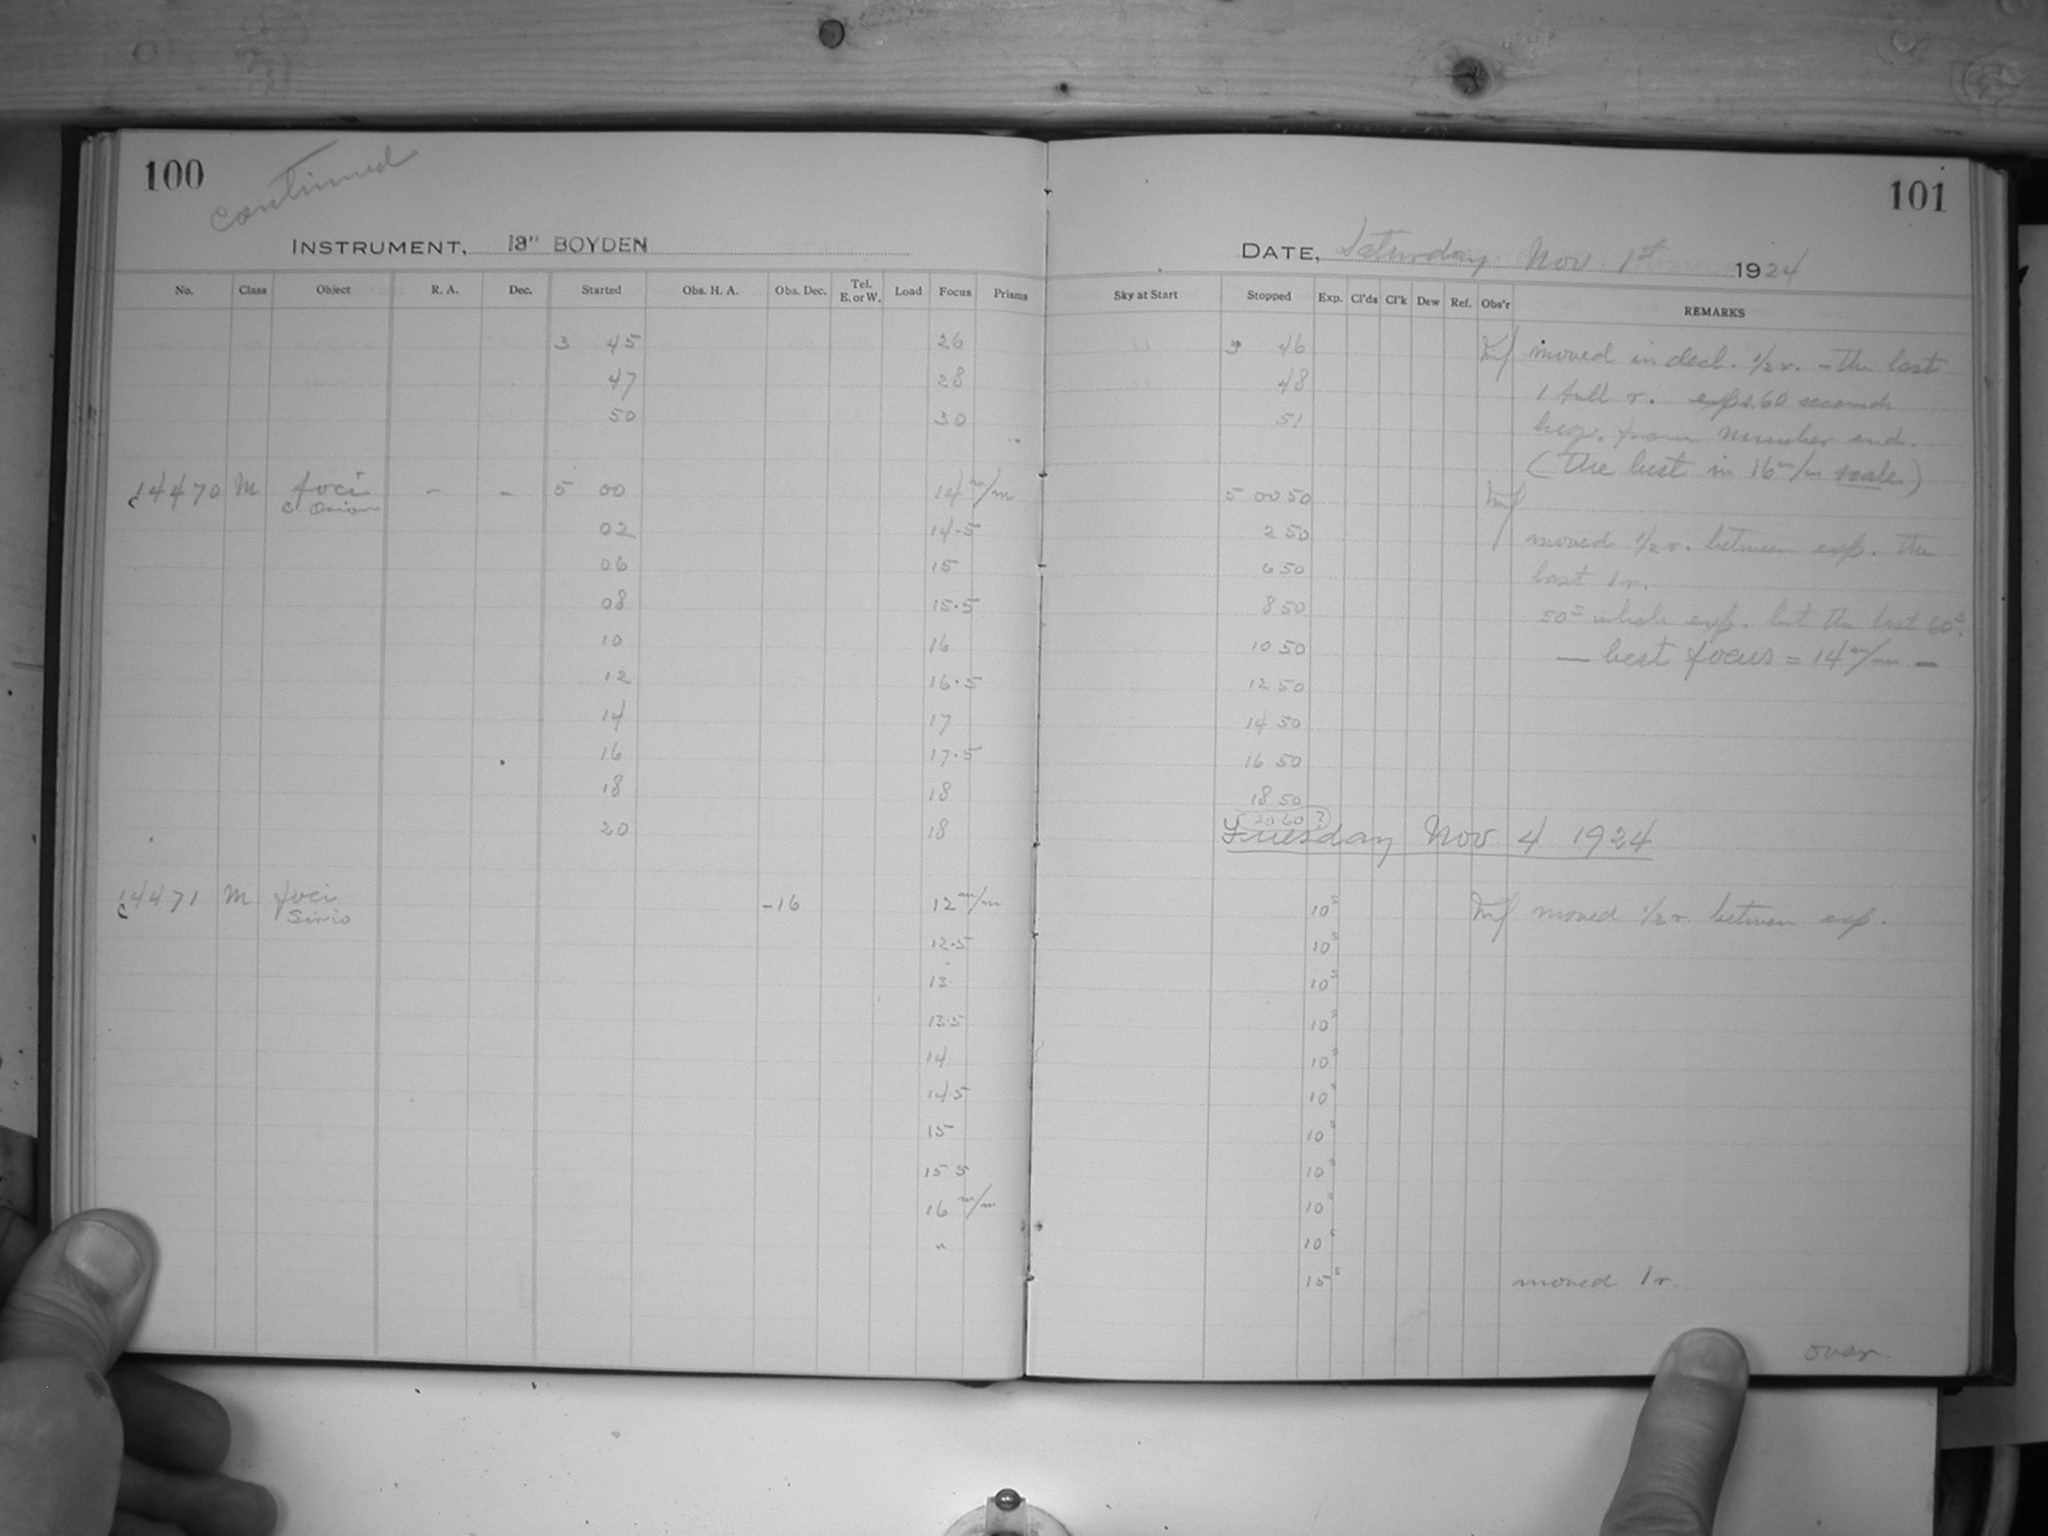 100
continued
INSTRUMENT, 13" BOYDEN
No. Class Object R. A. Dec. Started Obs. H. A. Obs. Dec. Tel. E. or W. Load Focus Prisms
3 45 26
47 28
50 30
14470 M foci - - 5 00 14 m/m
c
02 14.5
06 15
08 15.5
10 16
12 16.5
14 17
16 17.5
18 18
20 18
14471 M foci -16 12 m/m
c Sirio
12.5
13
13.5
14
14.5
15
15 5
16 m/m
"
101
DATE, Saturday Nov. 1st 1924
Sky at Start Stopped Exp. Cl'ds Cl'k Dew Ref. Obs'r REMARKS
3 46 moved in decl. 1/2 r. - the last
48 1 full r. exps. 60 seconds
51 beg. from number end.
(the best in 16 m/m scale)
5 00 50
2 50 moved 1/2 r. between exp. the
6 50 last 1 r.
8 50 50s whole exp. but the last 60s.
10 50 — best focus = 14 m/m —
12 50
14 50
16 50
18 50
(20 60?)
Tuesday Nov 4 1924
10s moved 1/2 r. between exp.
10s
10s
10s
10s
10s
10s
10s
10s
10s
15s moved 1 r.
over.